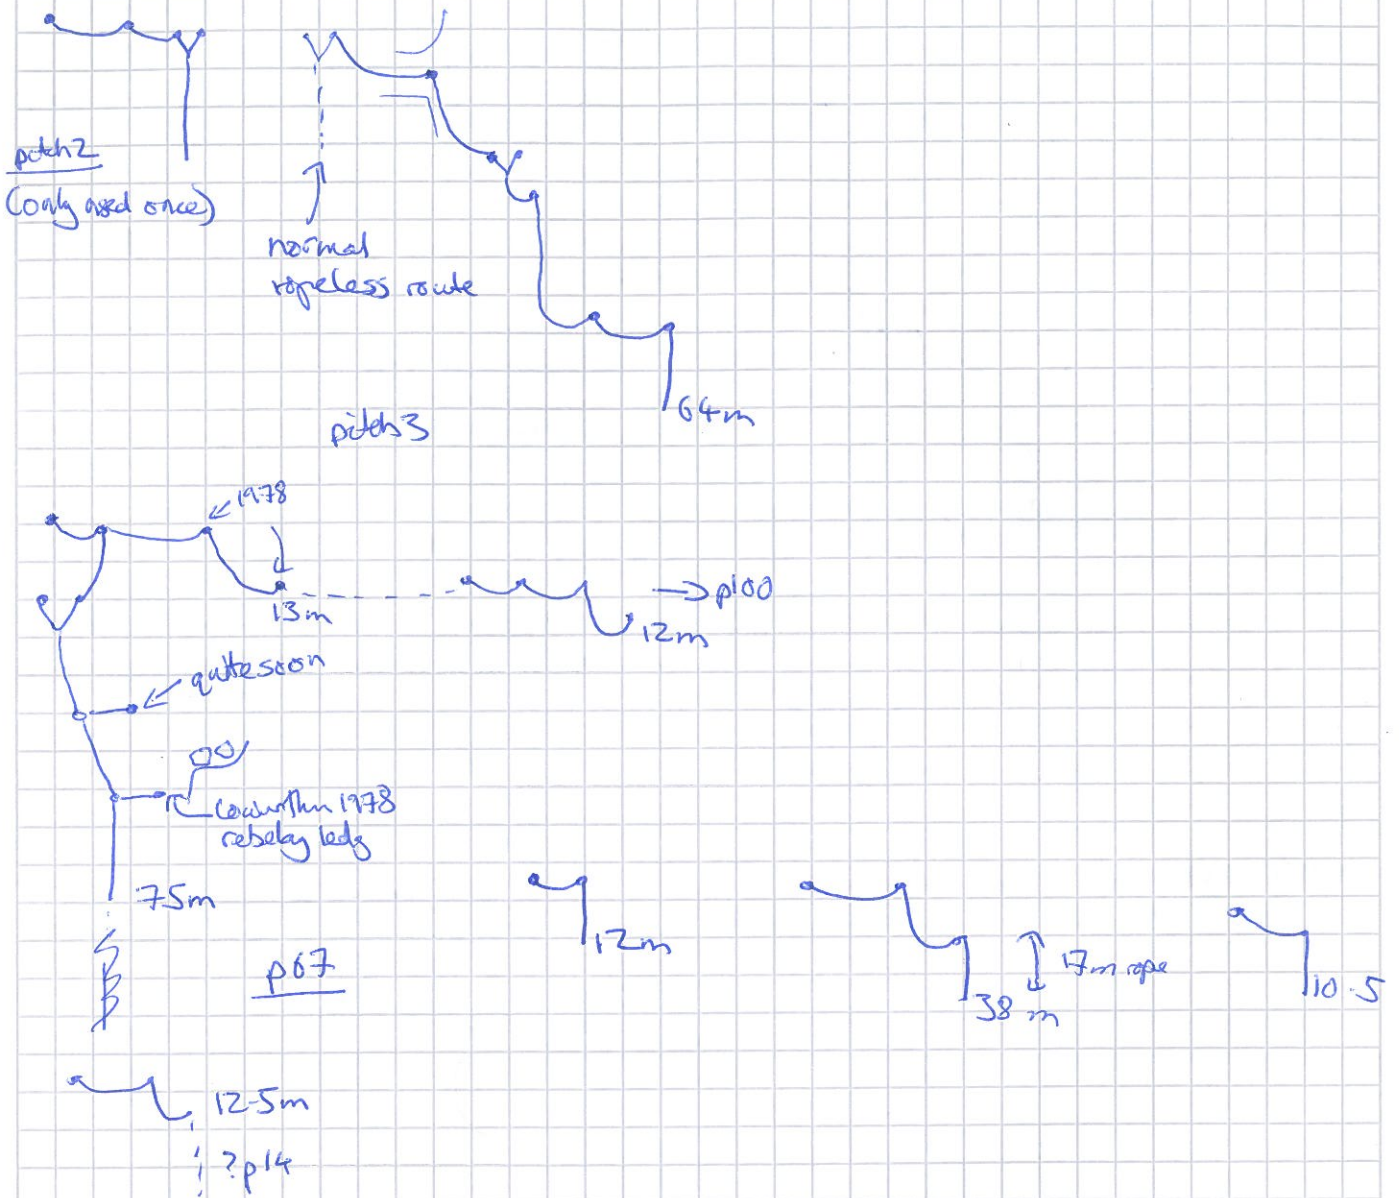 pitch2
(only used once)
normal
ropeless route
64m
pitch3
1978
13m
→ p100
12m
quite soon
1978
rebelay ledg
75m
p67
12m
38 m
17m rope
10.5
12.5m
?p14